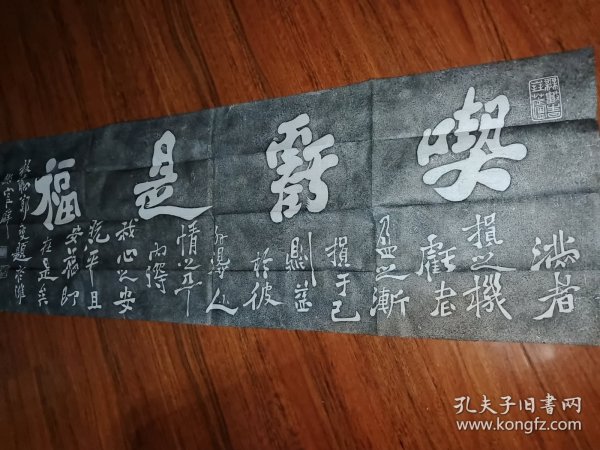 喫虧是福
滿者
損之機
虧者
盈之漸
損于己
則益
於彼
外得人
情之平
內得
我心之安
既平且
安福即
在是矣
板橋鄭燮題於濰
縣官署
孔夫子旧书网
www.kongfz.com